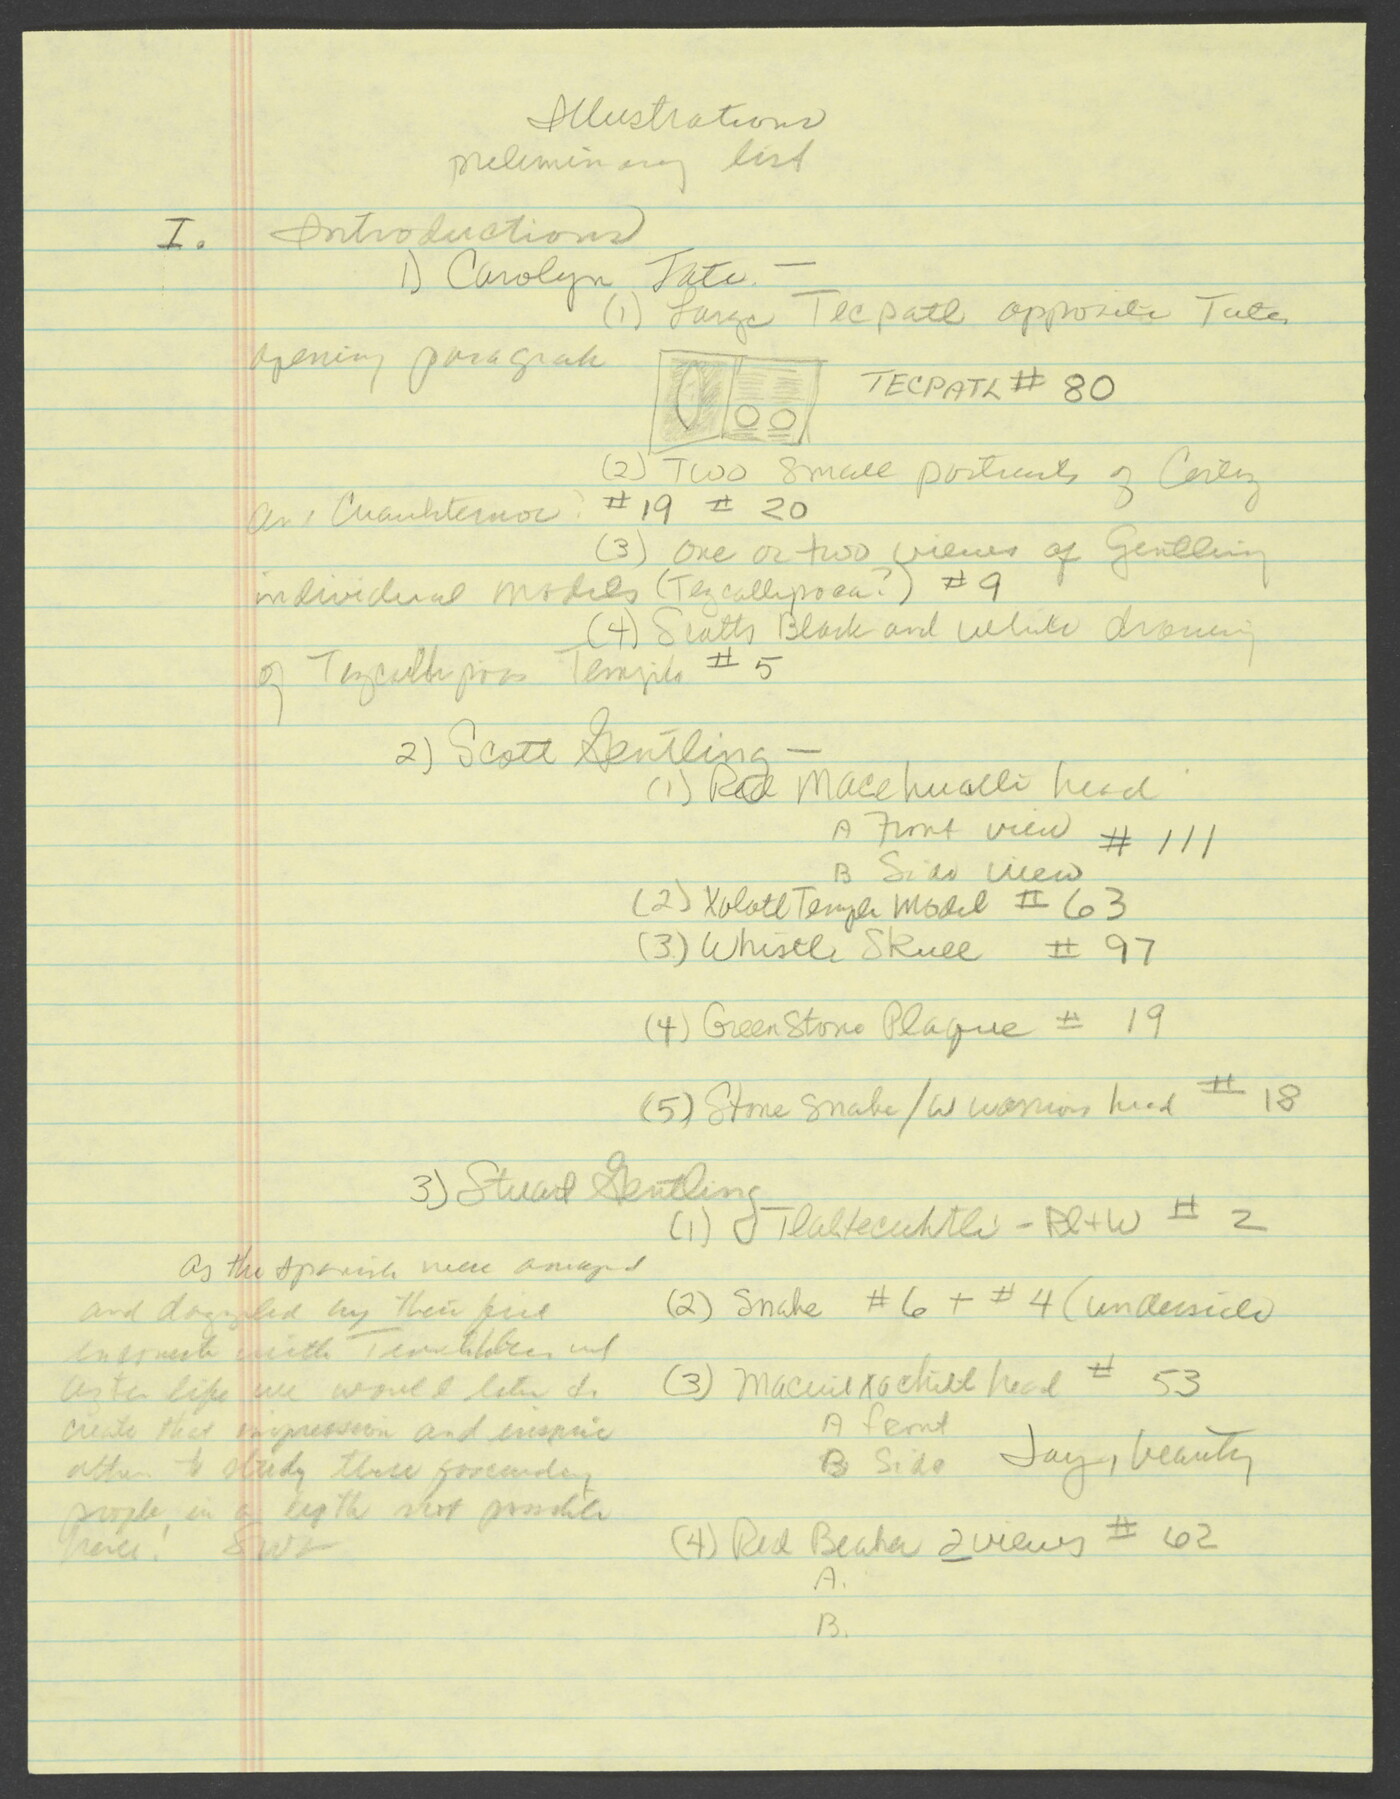 Illustrations
preliminary list
I. Introductions
1) Carolyn Tate. —
(1) Large Tecpatl opposite Tates
opening paragrah
TECPATL # 80
(2) Two small portraits of Cortez
and Cuauhtemoc? # 19 # 20
(3) one or two views of Gentling
individual models (Tezcatlipoca?) # 9
(4) Scotts Black and white drawing
of Tezcatlipocas Temple # 5
2) Scott Gentling —
(1) Red Macehualli head
A Front view # 111
B Side view
(2) Xolotl Temple Model # 63
(3) Whistle Skull # 97
(4) GreenStone Plaque # 19
(5) Stone snake/w warriors head # 18
3) Stuart Gentling
(1) Tlaltecuhtli - Bl+W # 2
(2) Snake # 6 + # 4 (underside)
(3) Macuilxochitl head # 53
A front
B Side Jay, beauty
(4) Red Beaker 2 views # 62
A.
B.
As the Spanish were amazed
and dazzled by their first
encounter with and
Aztec life we would like to
create that impression and inspire
others to study these
people, in a depth not possible
here!